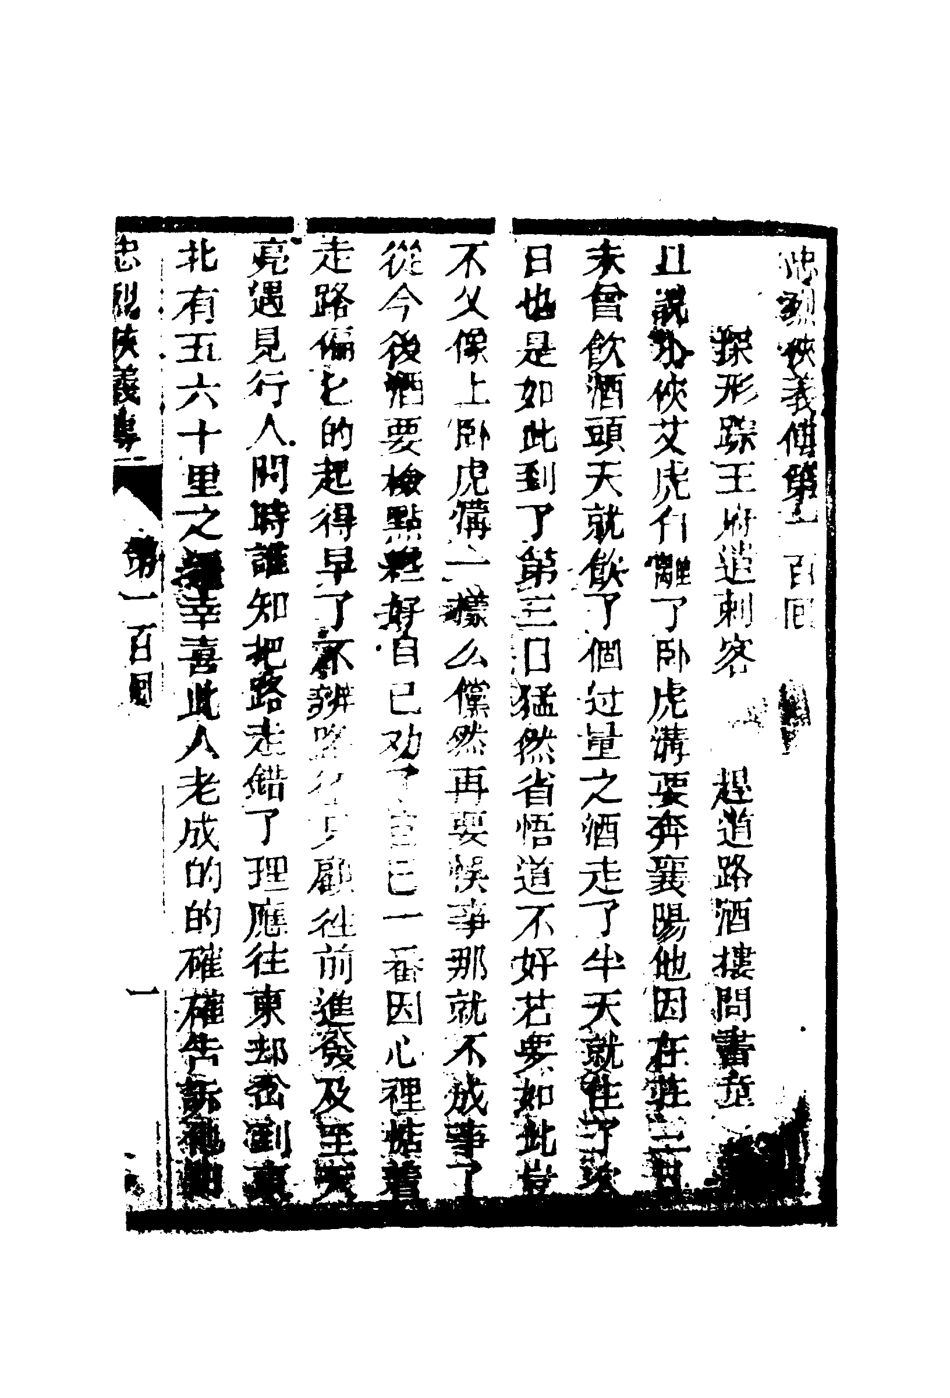 忠烈俠義傳第一百回
探形踪王府遣刺客　趕道路酒樓問書童
且說小俠艾虎自離了卧虎溝要奔襄陽他因在莊三日
未曾飲酒頭天就飲了個过量之酒走了半天就住了次
日也是如此到了第三日猛然省悟道不好若要如此豈
不又像上卧虎溝一樣么儻然再要悞事那就不成事了
從今後酒要檢點些好自己劝了自己一番因心裡惦着
走路偏乜的起得早了不辨路徑只顧徃前進發及至天
亮遇見行人問時誰知把路走錯了理應往東却岔到東
北有五六十里之遥幸喜此人老成的的確確告訴他
忠烈俠義傳　第一百回　一